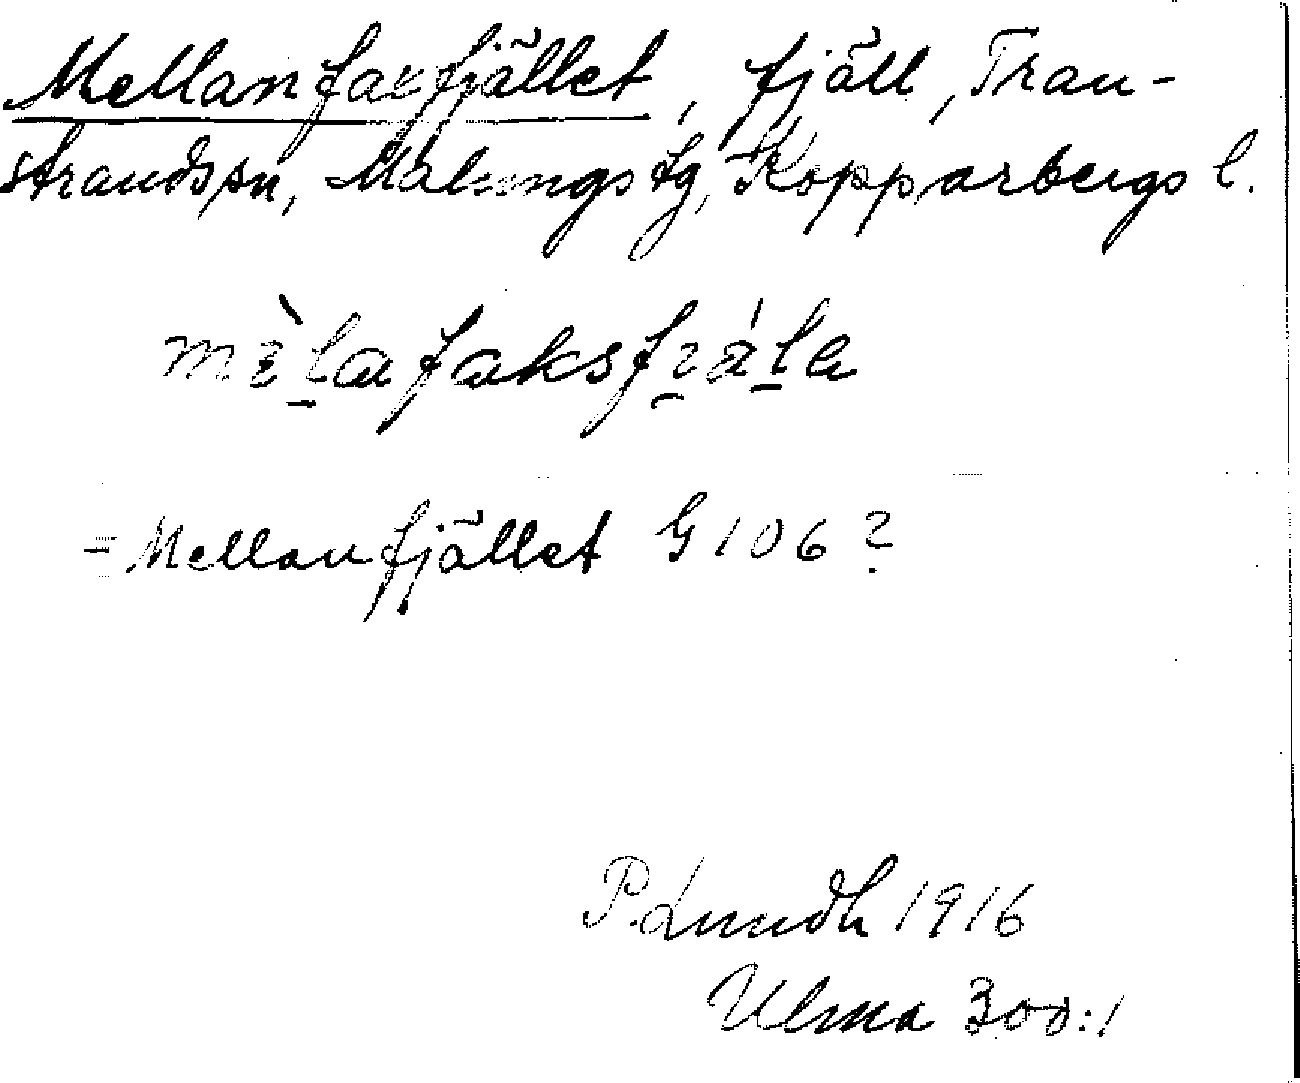 Mellanfaxfjället, fjäll, Tran-
strands sn, Malungs tg, Kopparbergs l.
mɛ̀lafaksfi̯äla
= Mellanfjället G 106?
P. Lundh 1916
Ulma 300:1